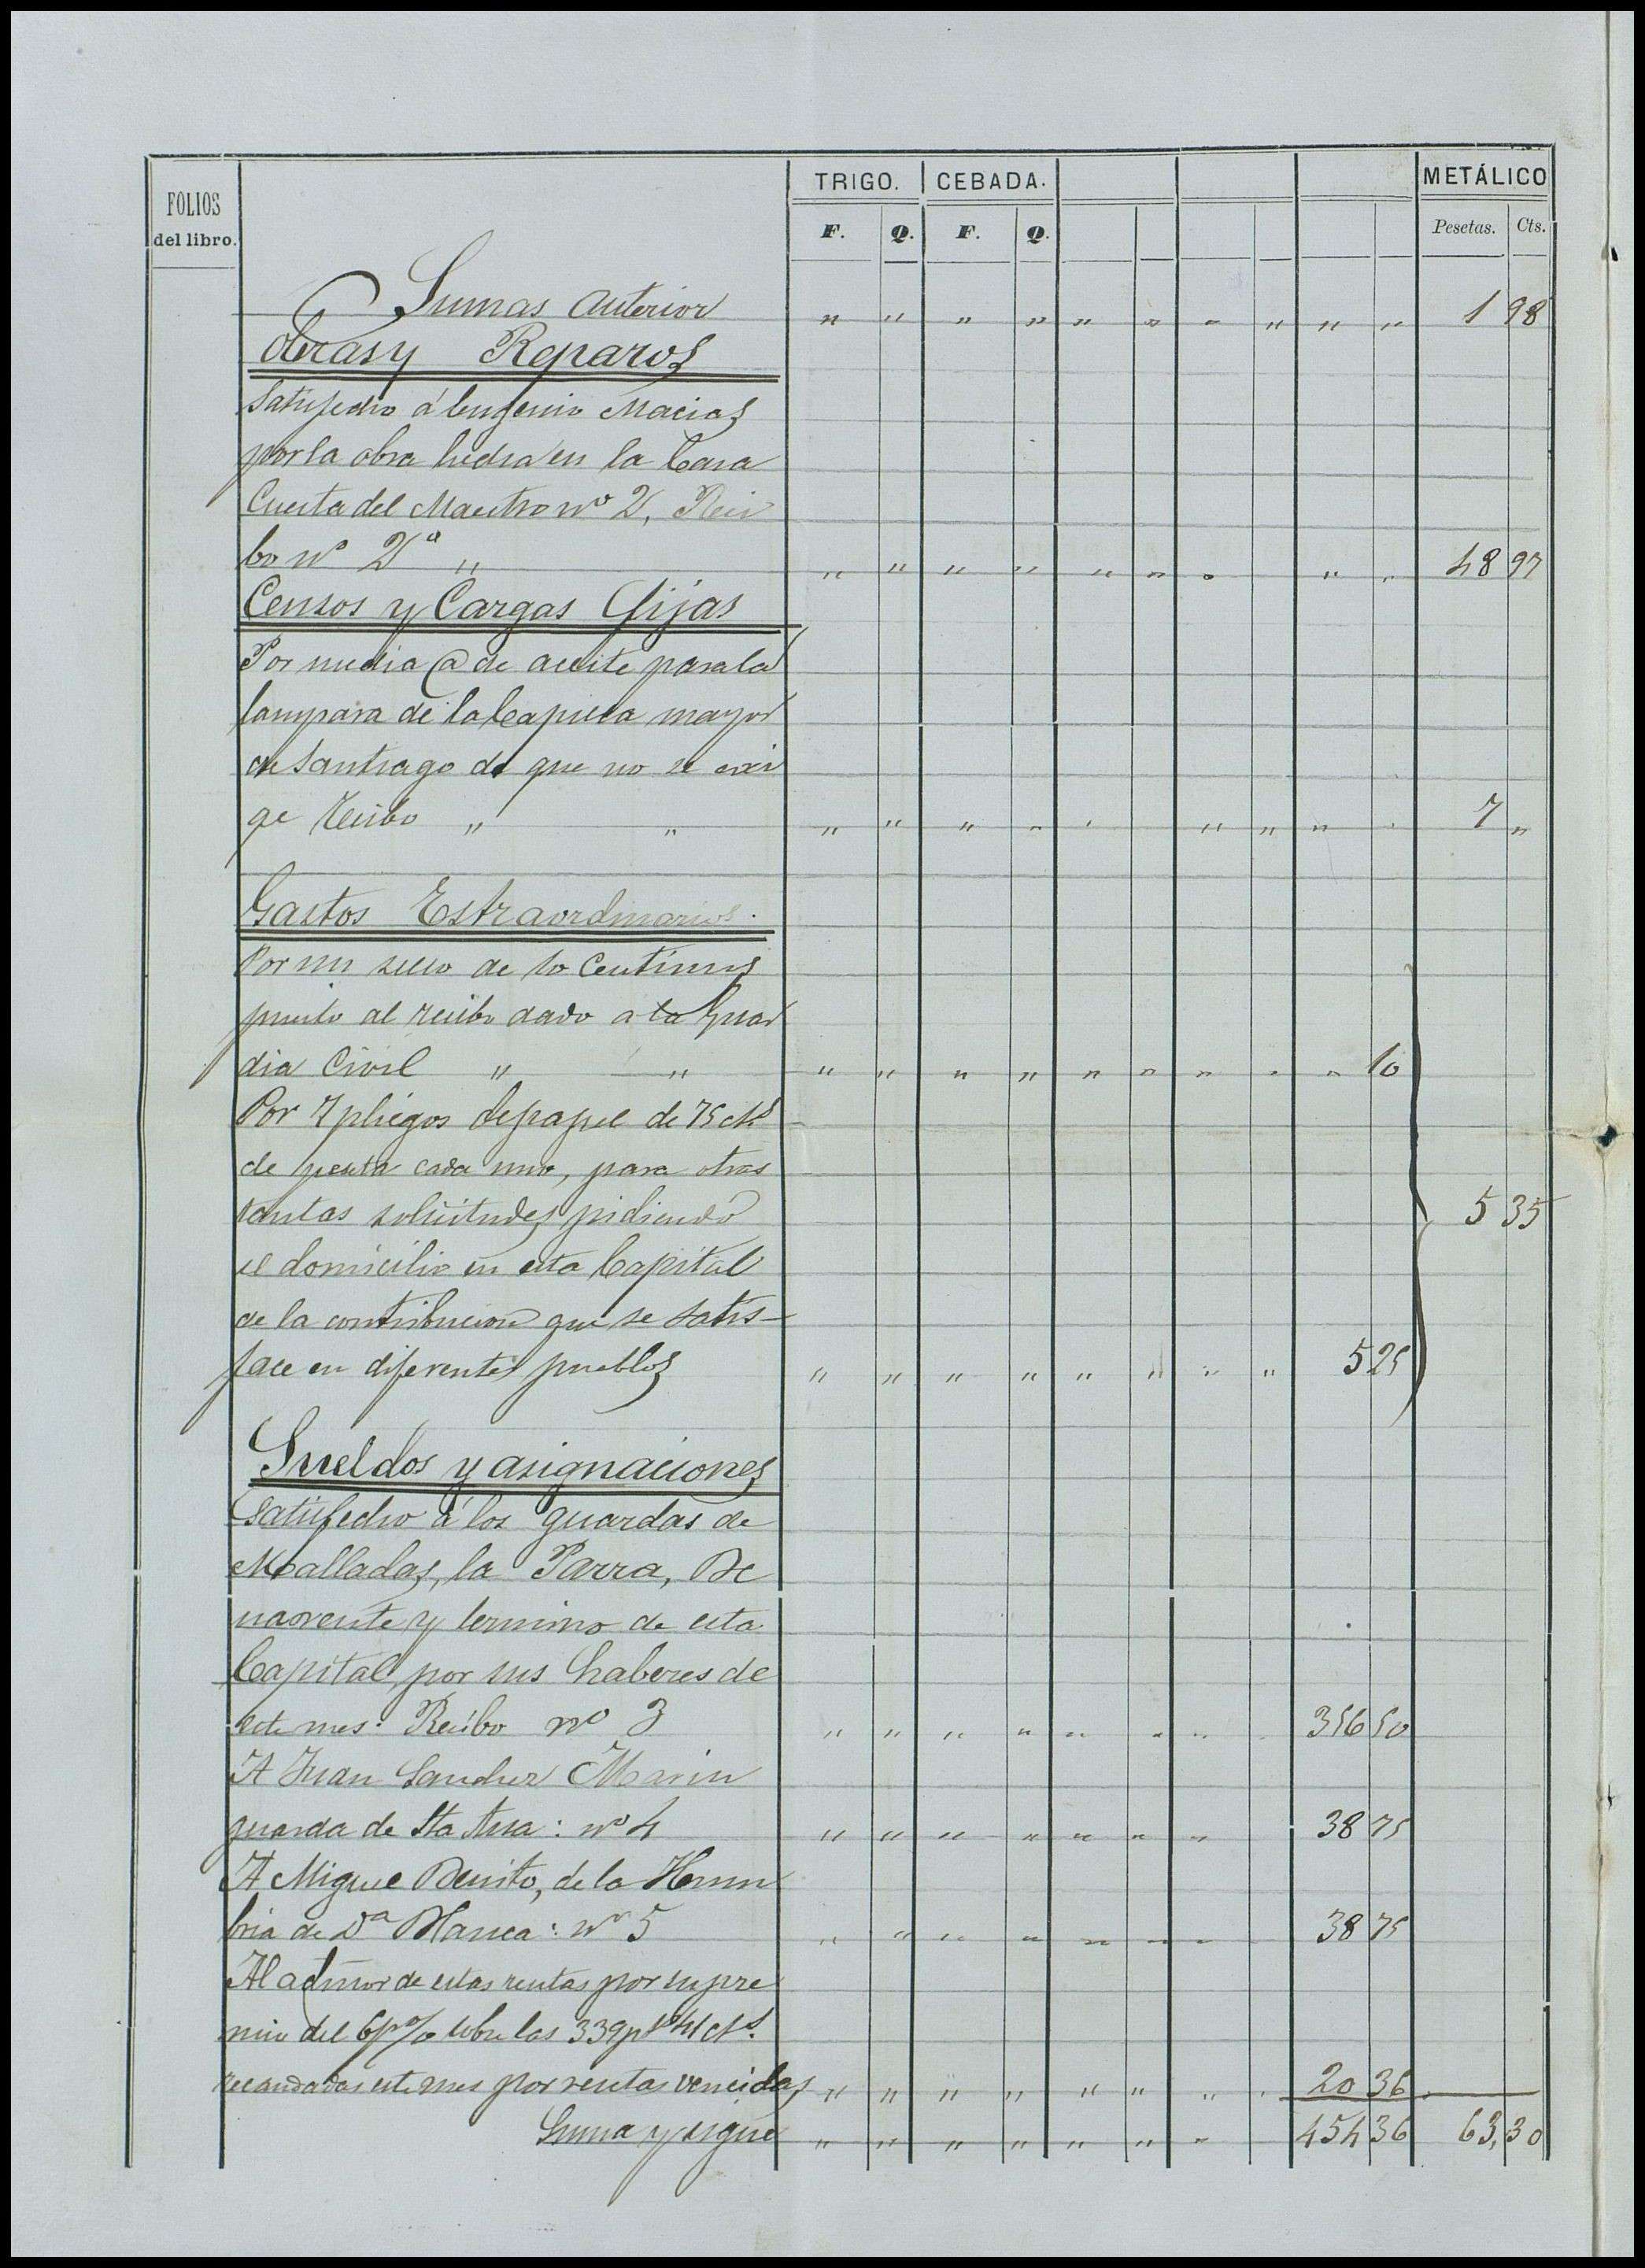 TRIGO. CEBADA. METÁLICO
FOLIOS
del libro.
F. Q. F. Q. Pesetas. Cts.
Sumas anterior " " " " " " " " " " 1 98
Obras y Reparos
Satisfecho á Eugenio Macias
por la obra hecha en la Casa
Cuenta del Maestro nº 2, Reci
bo nº 2º " " " " " " " " " " 48 97
Censos y Cargas Fijas
Por media @ de aceite para la
lampara de la Capilla mayor
de Santiago de que no se exi
ge recibo " " " " " " " " " " " 7 "
Gastos Estraordinarios.
Por un sello de 10 Centimos
puesto al recibo dado a la Guar
dia Civil " " " " " " " " " " " 10
Por 7 pliegos de papel de 75 cts
de peseta cada uno, para otras
tantas solicitudes pidiendo 5 35
el domicilio en esta Capital
de la contribucion que se satis-
face en diferentes pueblos " " " " " " " " 5 25
Sueldos y asignaciones
Satisfecho á los guardas de
Malladas, la Parra, Be
navente y termino de esta
Capital, por sus haberes de
este mes: Recibo nº 3 " " " " " " " 356 50
A Juan Sanchez Marin
guarda de Sta Tesa: nº 4 " " " " " " " 38 75
A Miguel Benito, de la
bria de Dª Blanca: nº 5 " " " " " " " 38 75
Al admor de estas rentas por su pre
mio del 6 p% sobre las 339 pts 41 cts.
recaudadas este mes por rentas vencidas " " " " " " " " 20 36
Suma y sigue " " " " " " " 454 36 63,30